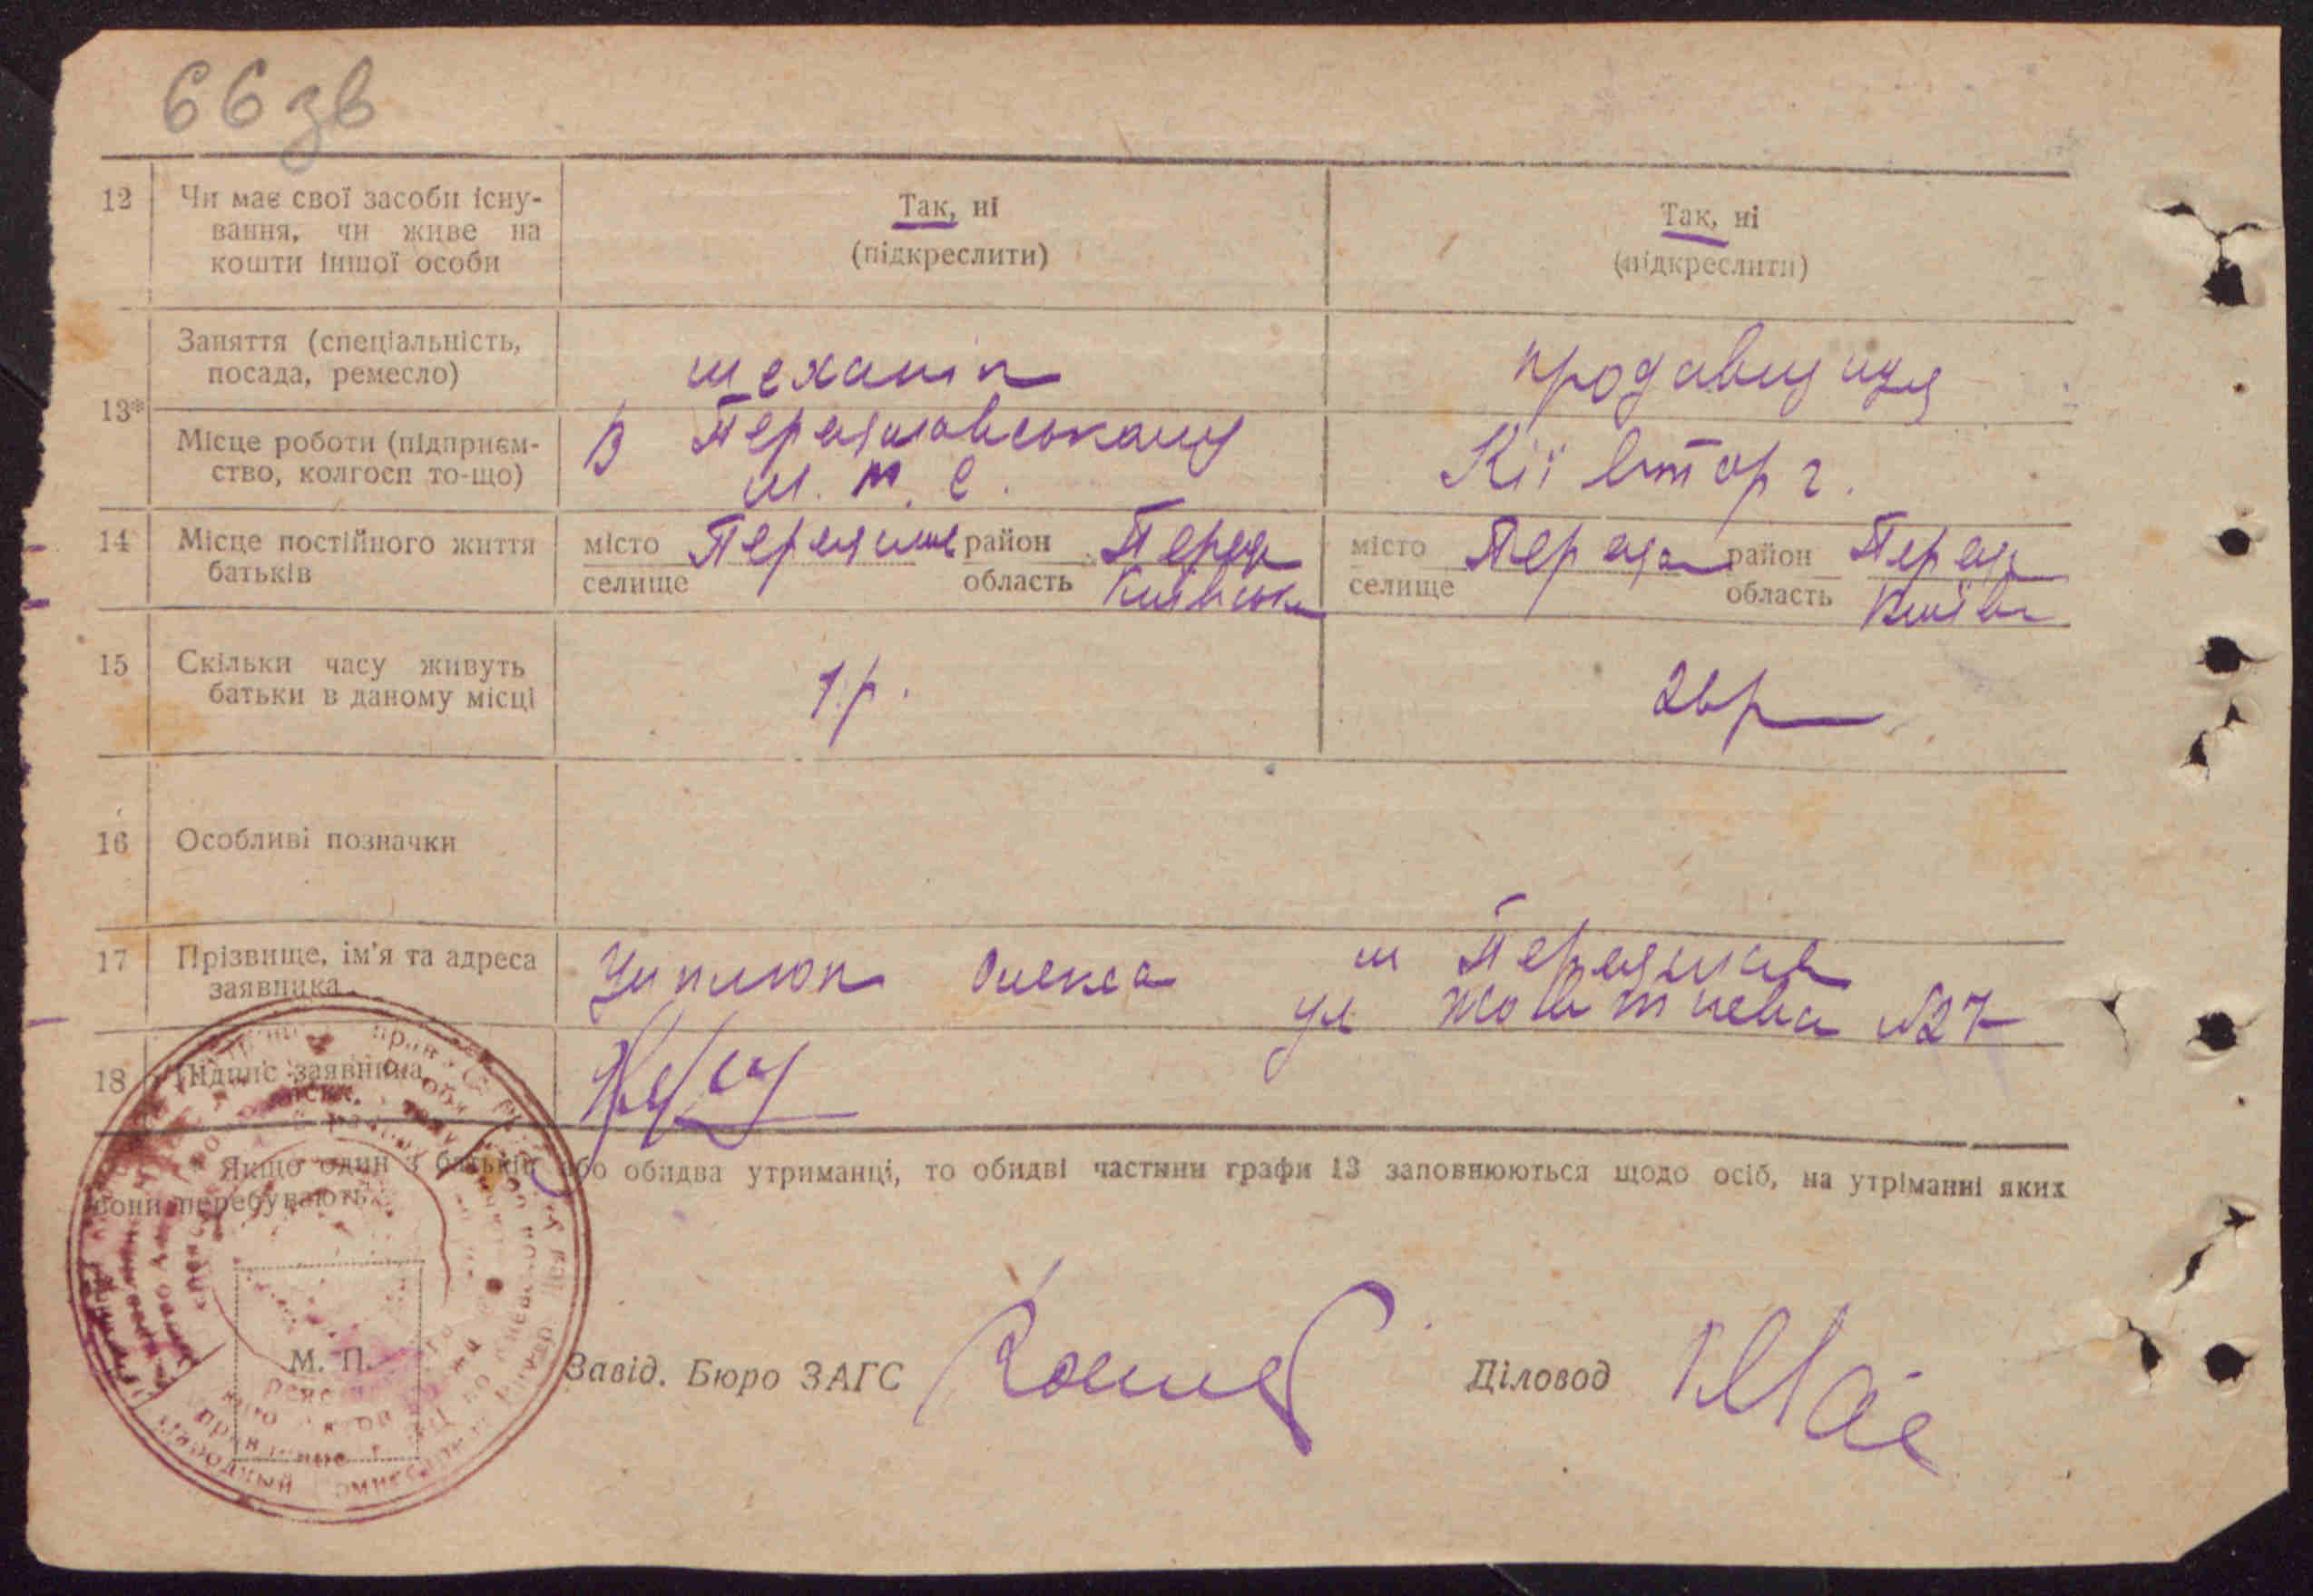 66зв
12 Чи має свої засоби існу-
вання, чи живе на
кошти іншої особи
Так, ні
(підкреслити)
Так, ні
(підкреслити)
13*
Заняття (спеціальність,
посада, ремесло)
механік
продавщиця
Місце роботи (підприєм-
ство, колгосп то-що)
В Переяславському
М. Т. С.
14 Місце постійного життя
батьків
місто
селище
Переяслав
район
область
Переяс
Київськ
місто
селище
Переяс
район
область
Переяс
Київс
15 Скільки часу живуть
батьки в даному місці
1 р.
26р
16 Особливі позначки
17 Прізвище, ім'я та адреса
заявника
Олекса
м Переяслав
ул Жовтнева №27
18 Підпис заявника
* Якщо один з батьків або обидва утриманці, то обидві частини графи 13 заповнюються щодо осіб, на утріманні яких
вони перебувають.
М. П.
Завід. Бюро ЗАГС
Діловод